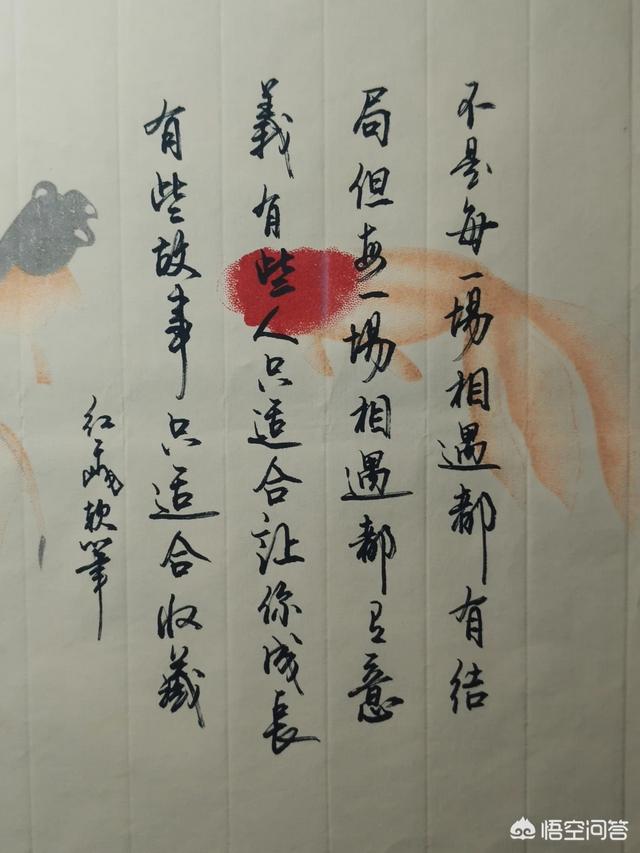 不是每一場相遇都有结
局但每一場相遇都有意
義有些人只适合让你成長
有些故事只适合收藏
红 软笔
悟空问答